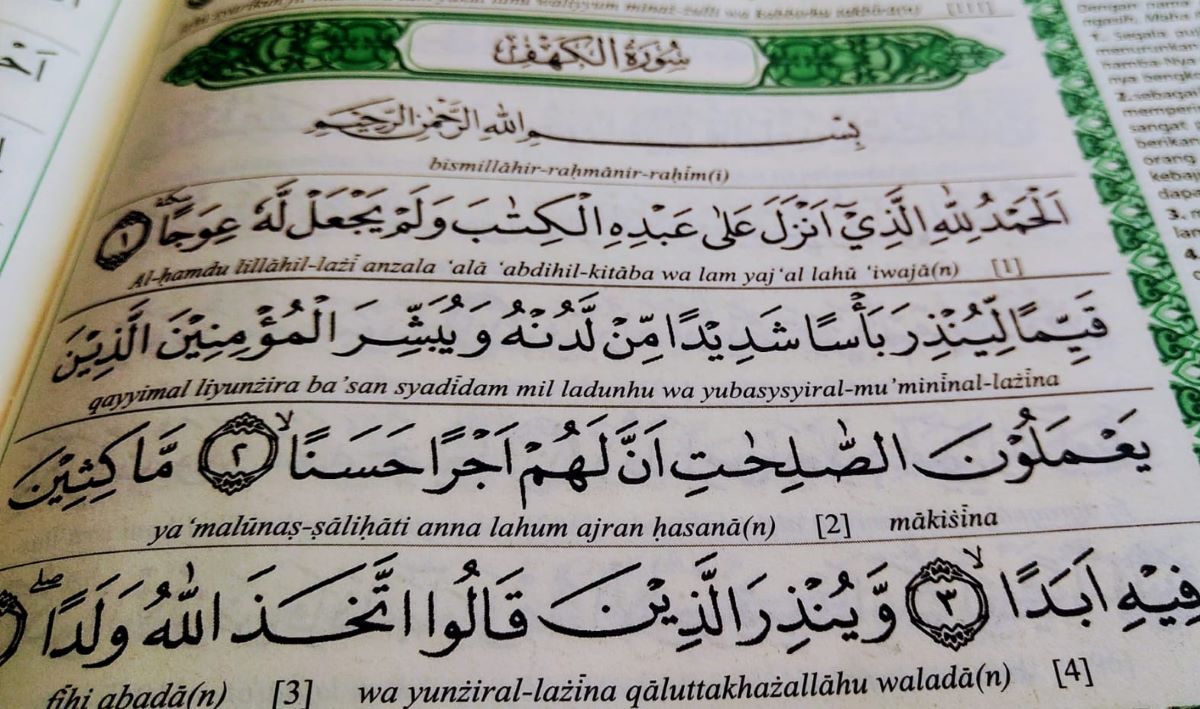 waliyyum minaż-żulli wa kabbirhu takbīrā(n) [111]
سُوْرَةُ الْكَهْفِ
بِسْمِ اللّٰهِ الرَّحْمٰنِ الرَّحِيْمِ
bismillāhir-raḥmānir-raḥīm(i)
اَلْحَمْدُ لِلّٰهِ الَّذِيْٓ اَنْزَلَ عَلٰى عَبْدِهِ الْكِتٰبَ وَلَمْ يَجْعَلْ لَّهٗ عِوَجًاۜ ١
Al-ḥamdu lillāhil-lażī anzala ‘alā ‘abdihil-kitāba wa lam yaj‘al lahū ‘iwajā(n) [1]
قَيِّمًا لِّيُنْذِرَ بَأْسًا شَدِيْدًا مِّنْ لَّدُنْهُ وَيُبَشِّرَ الْمُؤْمِنِيْنَ الَّذِيْنَ
qayyimal liyunżira ba’san syadīdam mil ladunhu wa yubasysyiral-mu’minīnal-lażīna
يَعْمَلُوْنَ الصّٰلِحٰتِ اَنَّ لَهُمْ اَجْرًا حَسَنًاۙ ٢ مَّاكِثِيْنَ
ya‘malūnaṣ-ṣāliḥāti anna lahum ajran ḥasanā(n) [2] mākiṡīna
فِيْهِ اَبَدًاۙ ٣ وَّيُنْذِرَ الَّذِيْنَ قَالُوا اتَّخَذَ اللّٰهُ وَلَدًاۖ
fīhi abadā(n) [3] wa yunżiral-lażīna qāluttakhażallāhu waladā(n) [4]
Dengan nama
ngasih, Maha
1. Segala
menurunkan
hamba-Nya
2. sebagai
sangat
berikan
orang
3.
4.